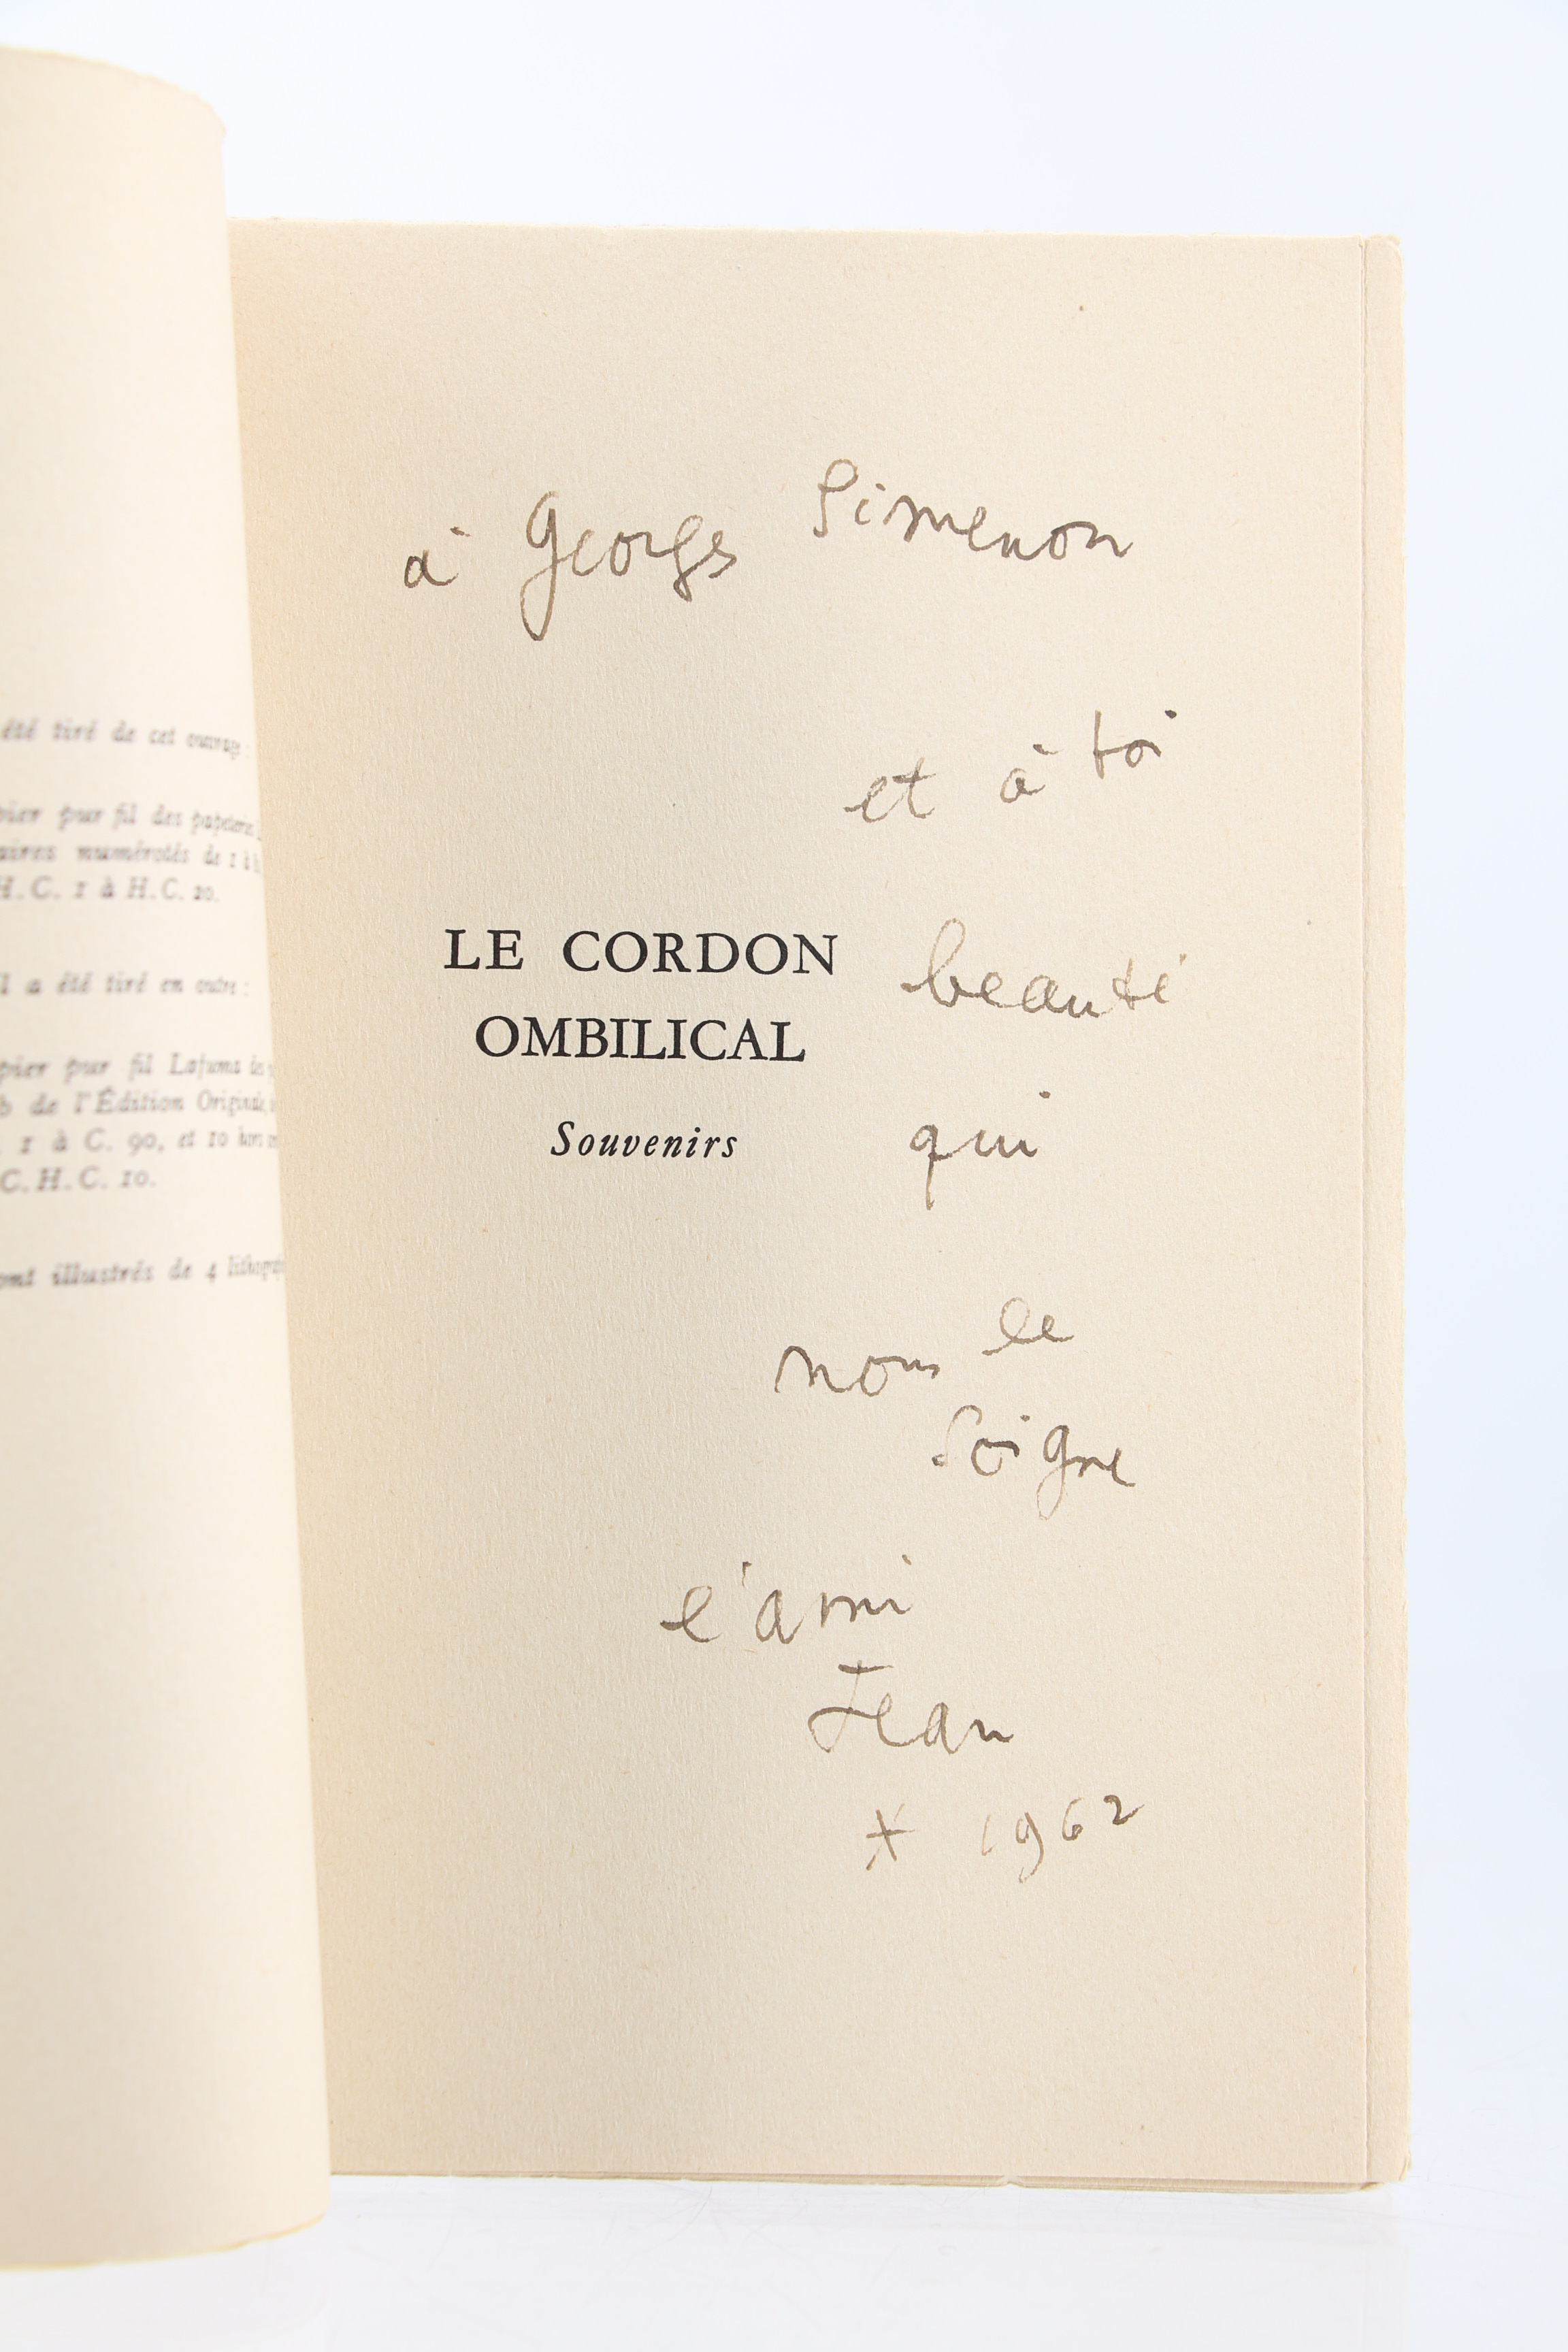 été tiré de cet ouvrage :
pier pur fil des papeteries
aires numérotés de 1 à
H.C. 1 à H.C. 20.
l a été tiré en outre :
pier pur fil Lafuma des
de l'Édition Originale,
1 à C. 90, et 10 hors
C.H.C. 10.
ont illustrés de 4
à Georges Simenon
et à toi
LE CORDON
OMBILICAL
Souvenirs
beauté
qui
nous le
soigne
l'ami
Jean
* 1962